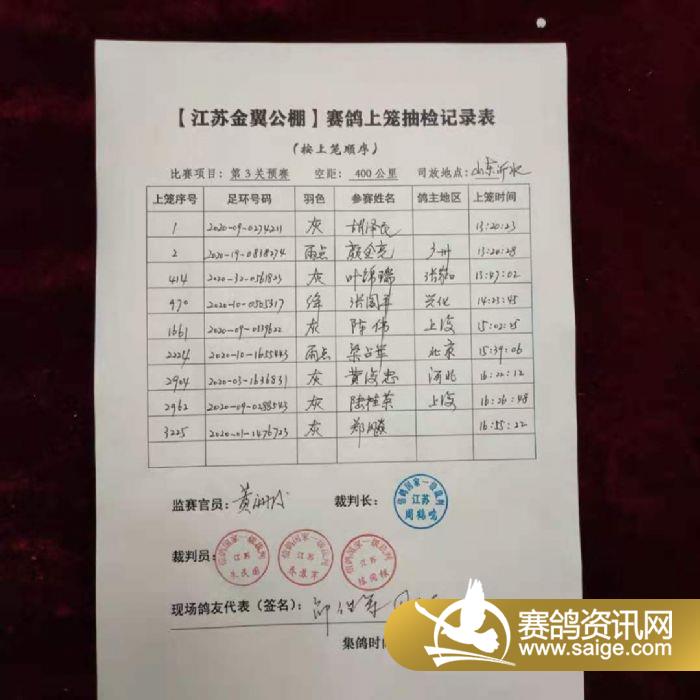 【江苏金翼公棚】赛鸽上笼抽检记录表
(按上笼顺序)
比赛项目: 第3关预赛 空距: 400公里 司放地点: 山东沂水
上笼序号 足环号码 羽色 参赛姓名 鸽主地区 上笼时间
1 2020-09-0274211 灰 胡泽民 13:20:23
2 2020-19-0818274 雨点 颜金亮 广州 13:20:28
414 2020-32-0561823 灰 叶锦瑞 张家口 13:47:02
970 2020-10-0505317 绛 张国平 兴化 14:23:45
1661 2020-09-0139622 灰 陈伟 上海 15:02:25
2224 2020-10-1655443 雨点 梁占革 北京 15:39:06
2904 2020-03-1636831 灰 黄俊忠 河北 16:22:12
2962 2020-09-0288543 灰 陆桂荣 上海 16:26:48
3225 2020-01-1476723 灰 郑 16:55:22
监赛官员: 裁判长:
信鸽国家一级裁判
江苏
裁判员:
信鸽国家一级裁判
江苏
信鸽国家一级裁判
江苏
信鸽国家一级裁判
江苏
现场鸽友代表(签名):
集鸽时
赛鸽资讯网
www.saige.com